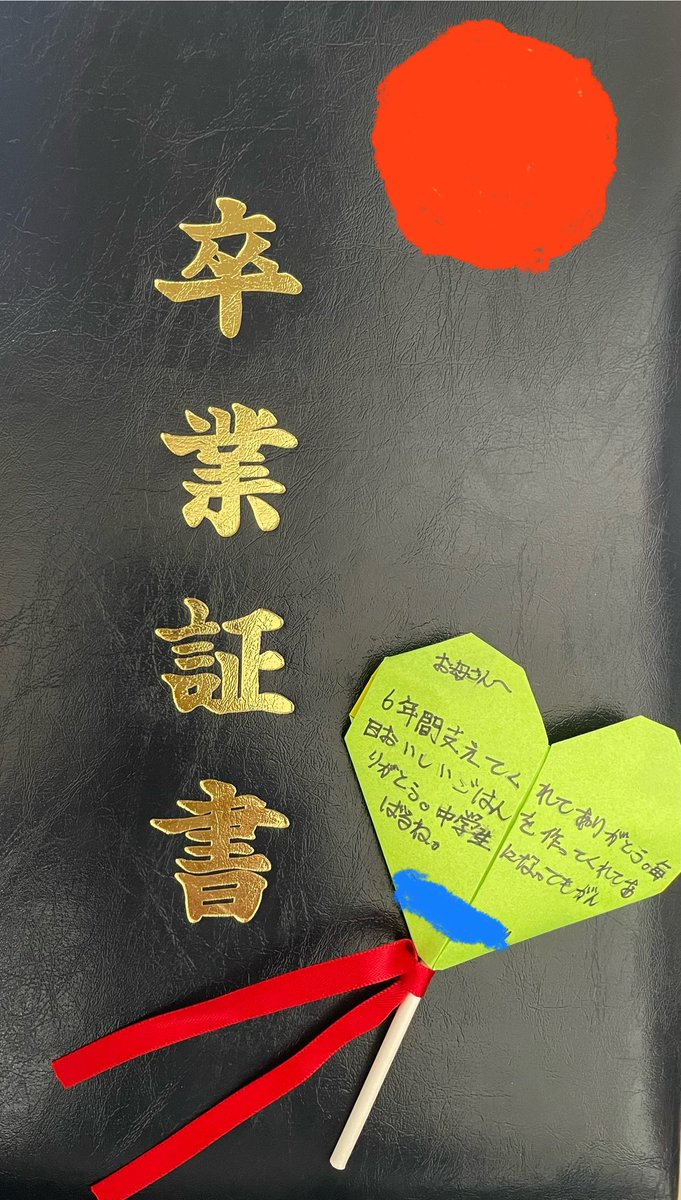 卒業証書
お母さんへ
6年間支えてくれてありがとう。毎
日おいしいごはんを作ってくれてあ
りがとう。中学生になってもがん
ばるね。